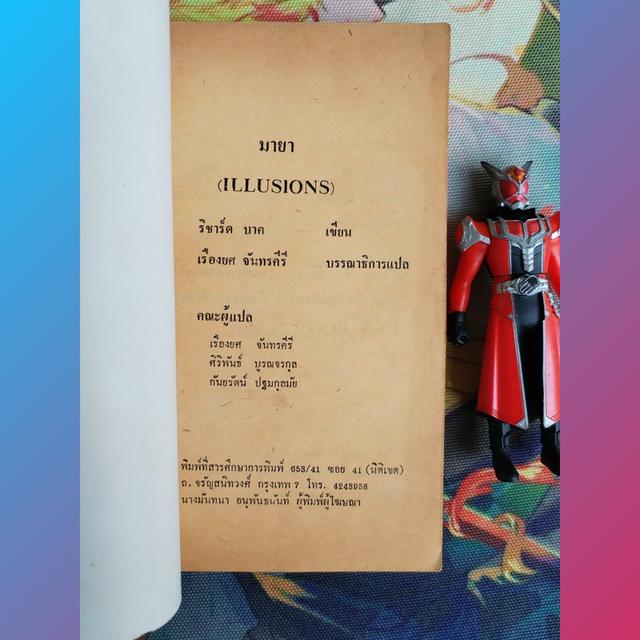 มายา
(ILLUSIONS)
ริชาร์ด บาค เขียน
เรืองยศ จันทรคีรี บรรณาธิการแปล
คณะผู้แปล
เรืองยศ จันทรคีรี
ศิริพันธ์ บูรณจรกุล
กันยรัตน์ ปฐมกุลมัย
พิมพ์ที่สารศึกษาการพิมพ์ 653/41 ซอย 41 (นิติเขต)
ถ. จรัญสนิทวงศ์ กรุงเทพ 7 โทร. 4243958
นางมันทนา อนุพันธนันท์ ผู้พิมพ์ผู้โฆษณา